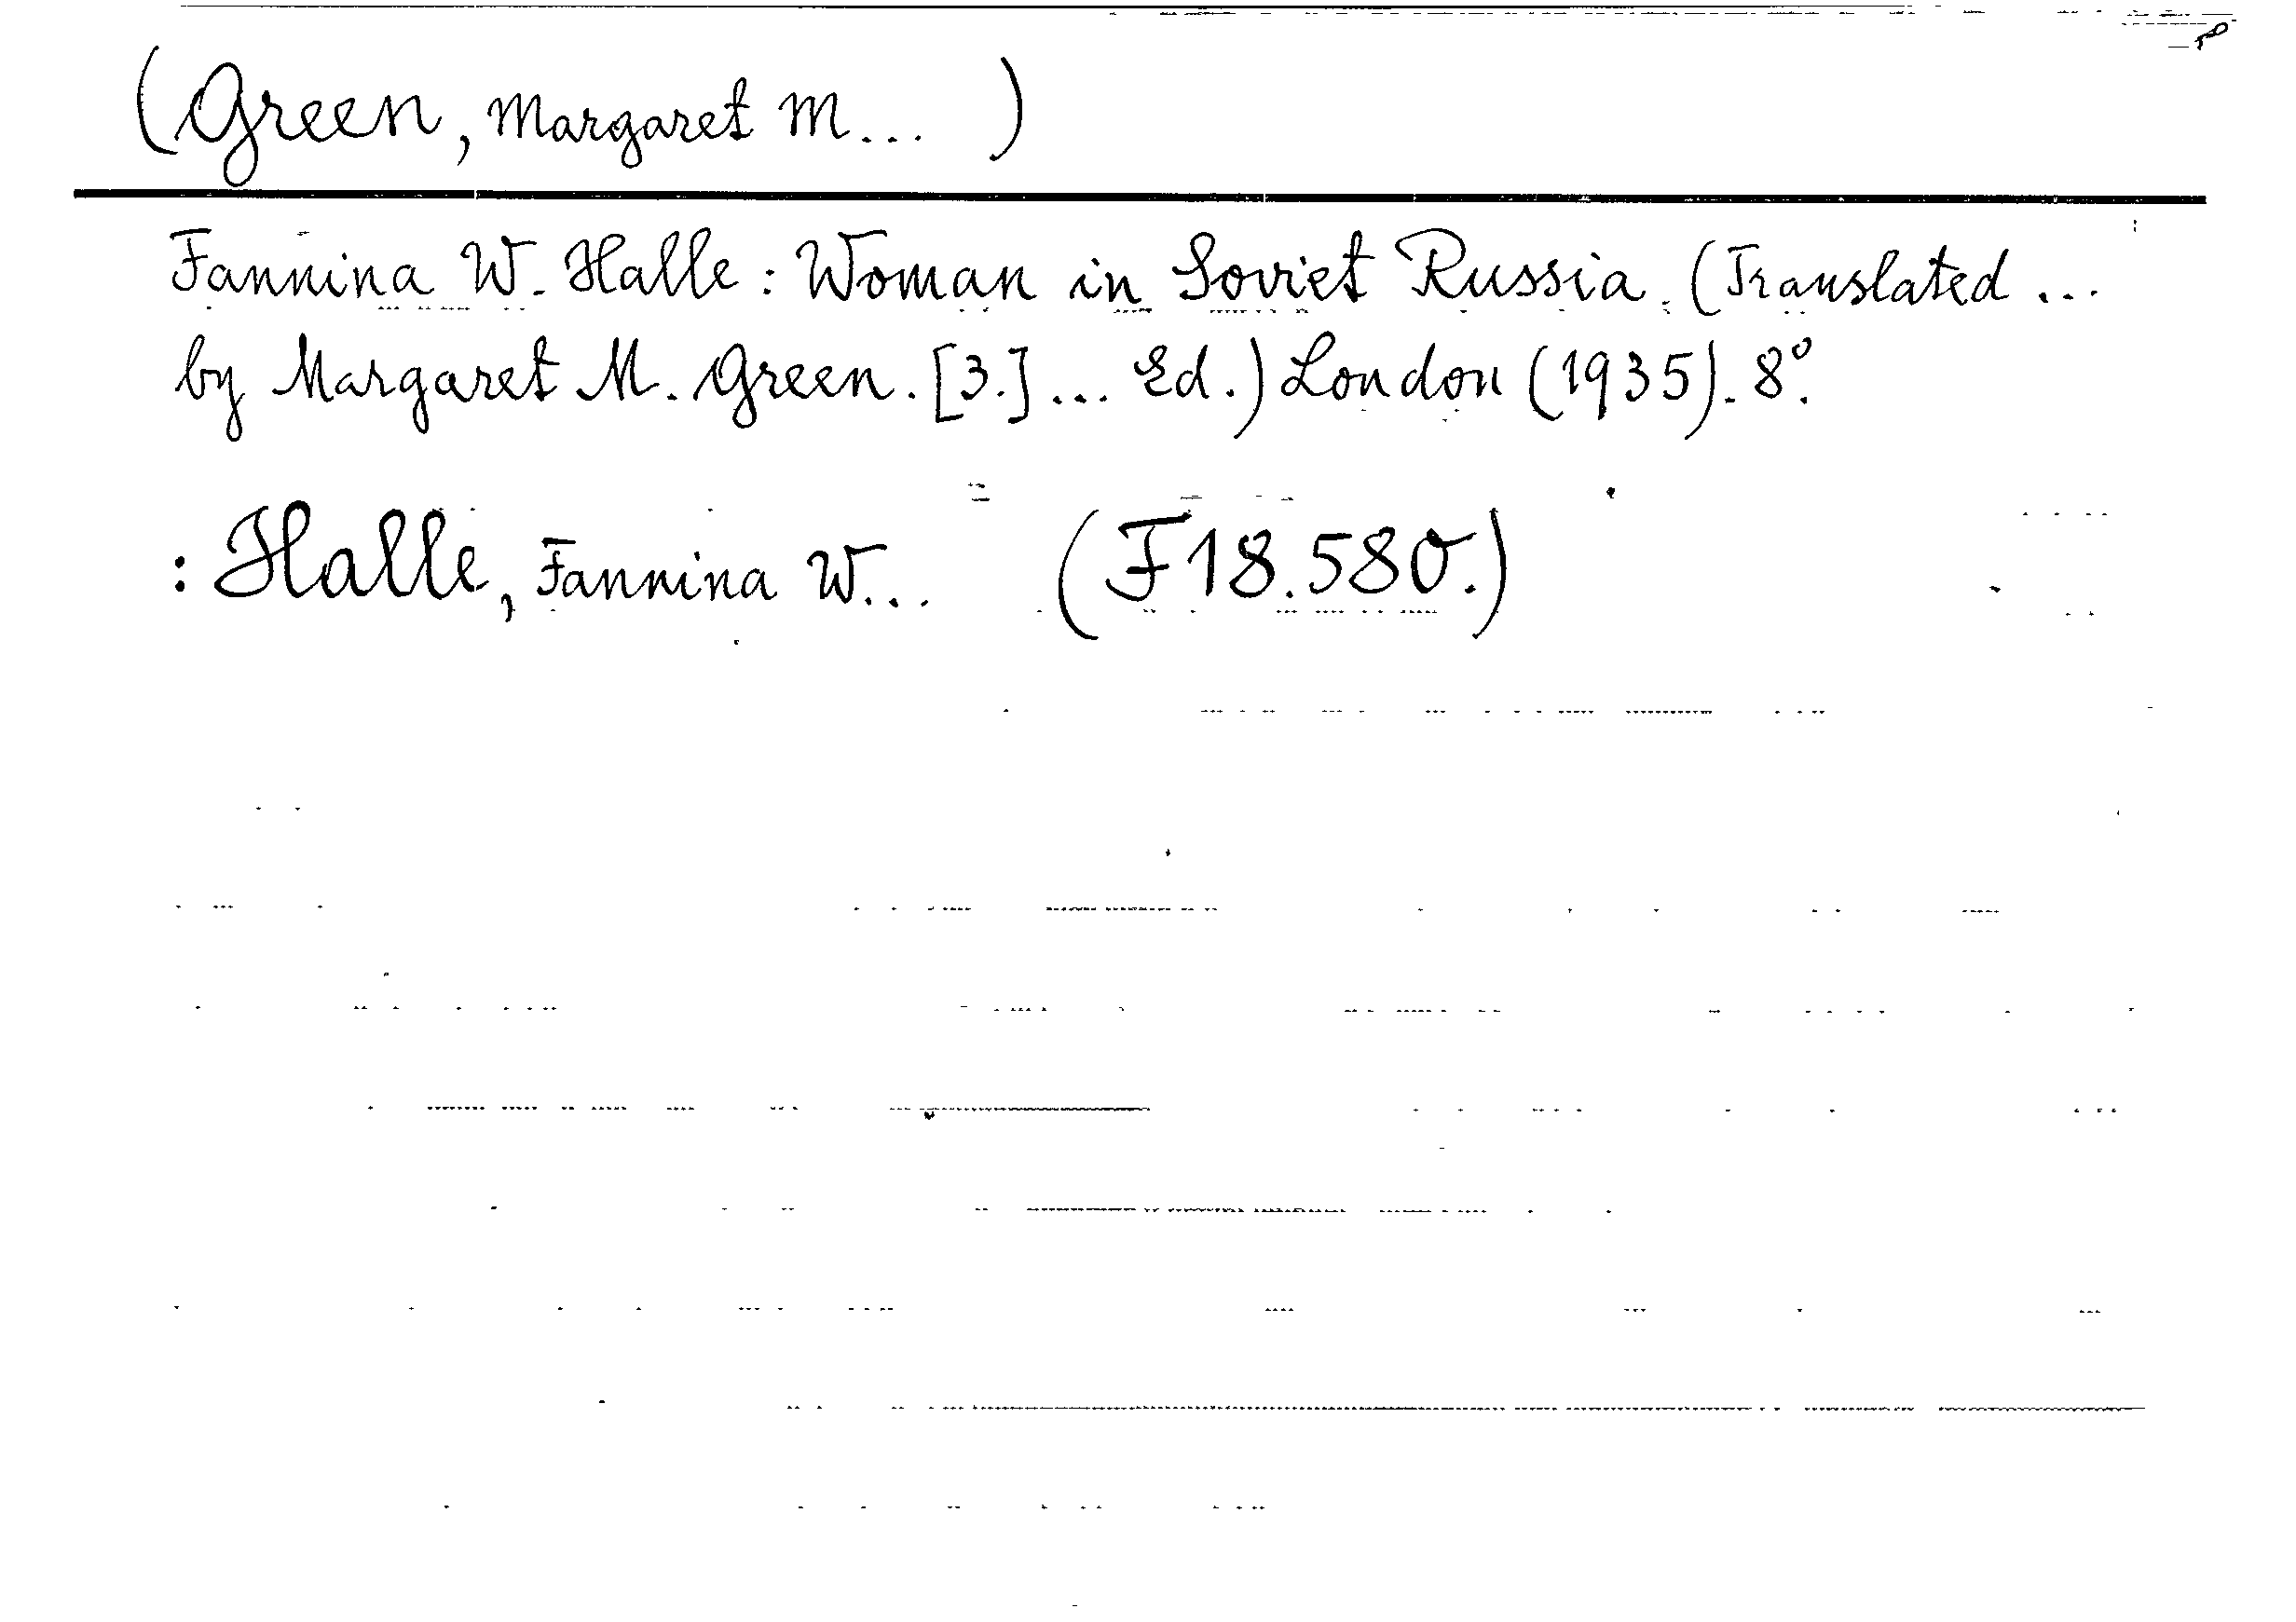 (Green, Margaret M... )
Fannina W. Halle: Woman in Soviet Russia. (Translated ...
by Margaret M. Green. [3.] ... Ed.) London (1935). 8°.
: Halle, Fannina W... (F 18.580.)